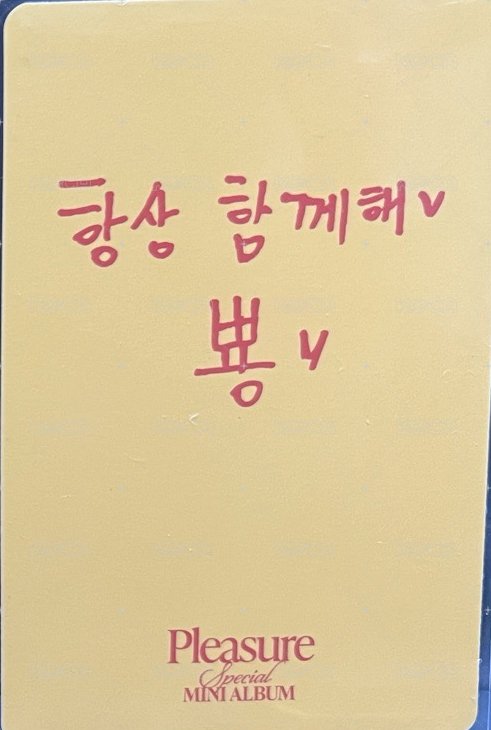 항상 함께해v
뿅v
Pleasure
Special
MINI ALBUM